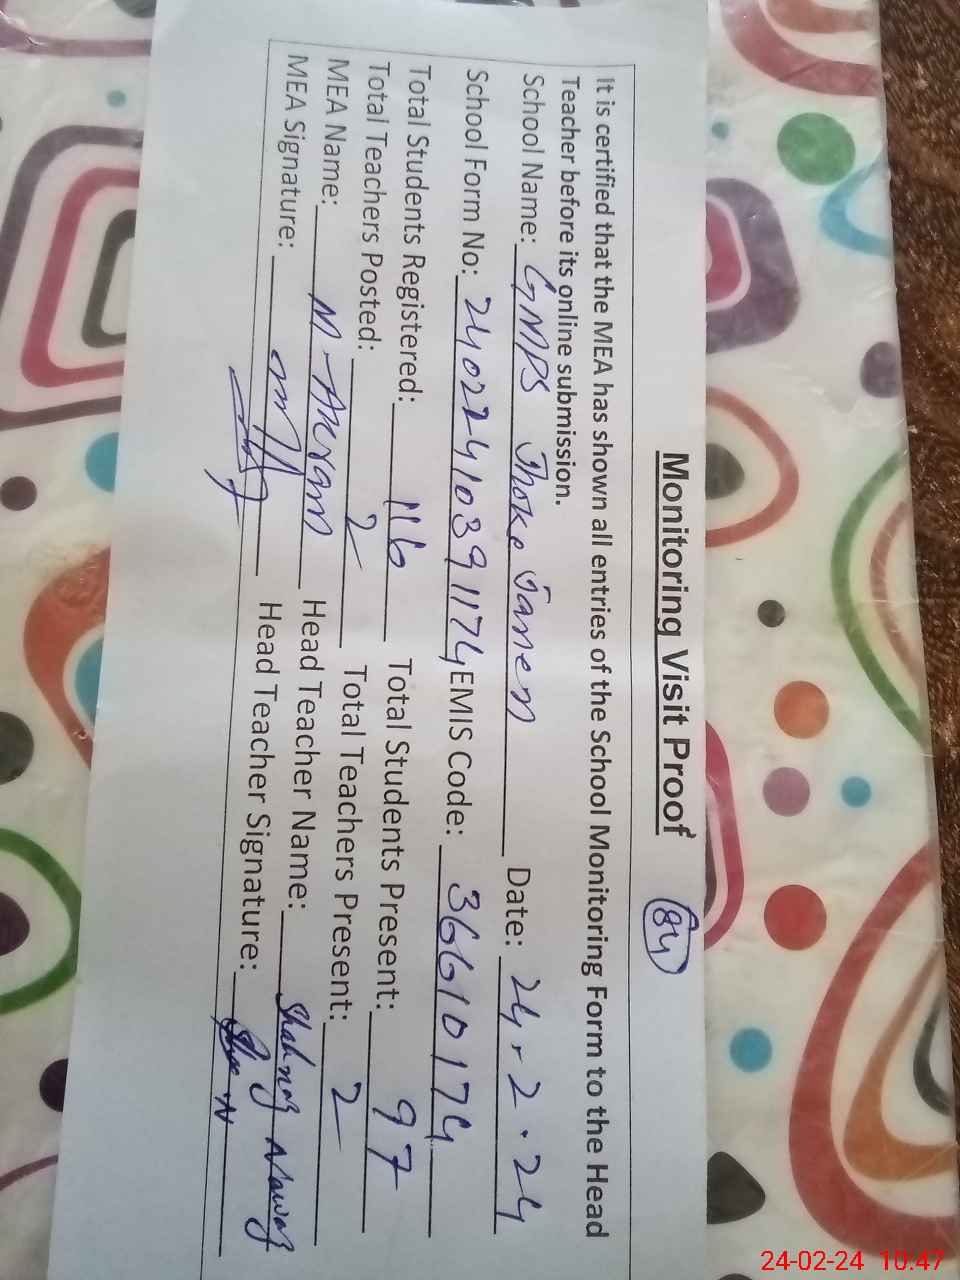 Monitoring Visit Proof 84
It is certified that the MEA has shown all entries of the School Monitoring Form to the Head
Teacher before its online submission.
School Name: GMPS Jhoke Jaseen Date: 24-2-24
School Form No: 24022410391174 EMIS Code: 36610174
Total Students Registered: 116 Total Students Present: 97
Total Teachers Posted: 2 Total Teachers Present: 2
MEA Name: M-Akram Head Teacher Name: Shahnaz Nawaz
MEA Signature: Head Teacher Signature:
24-02-24 10:47